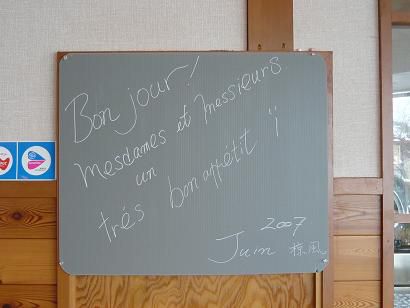 Bon jour!
mesdames et messieurs
un
trés bon appétit !
2007
Juin 椋風